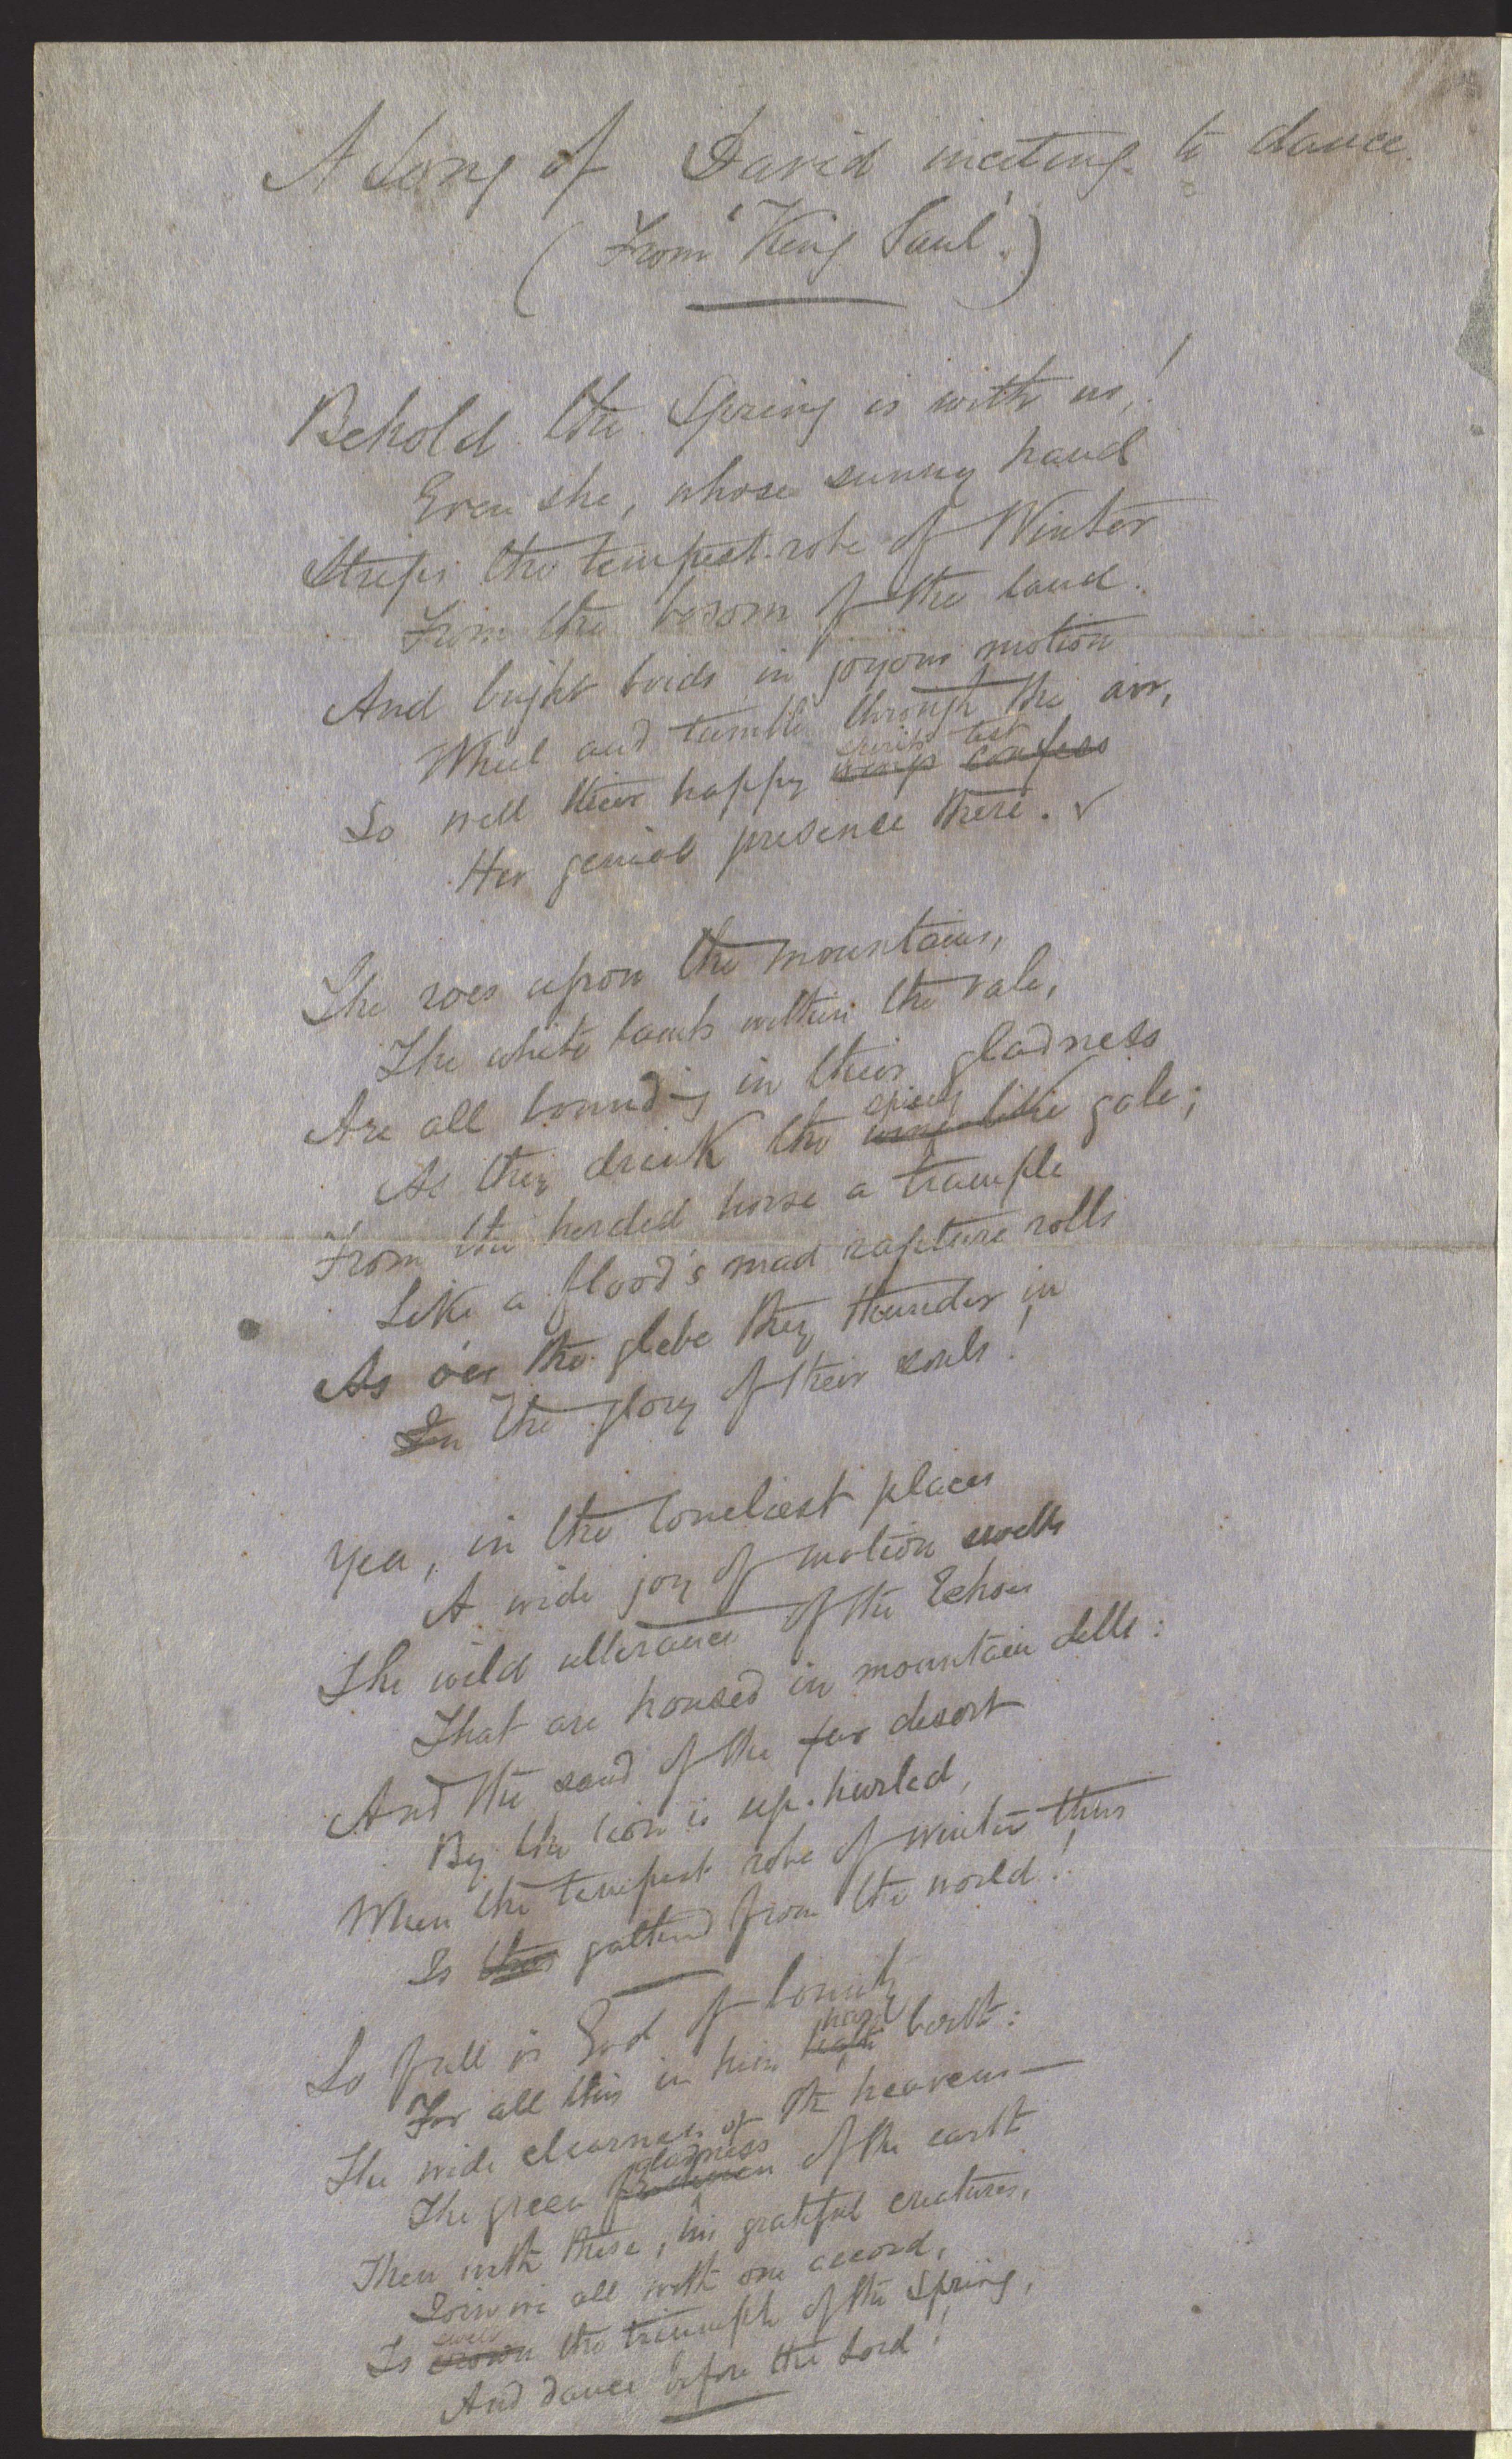 A Song of David inciting to dance.
(From 'King Saul'.)
Behold the Spring is with us!
Even she, whose sunny hand
Strips the tempest-robe of Winter
From the bosom of the land.
And bright birds in joyous motion
Wheel and tumble through the air,
spirits test
So well their happy wings confess
Her genial presence there.
The roes upon the mountains,
The white lambs within the vale,
Are all bounding in their gladness
spicey
As they drink the wine-like gale;
From the herded horse a trample
Like a flood's mad rapture rolls
As o'er the glebe they thunder in
In the glory of their souls!
Yea, in the loneliest places
A wide joy of motion swells
The wild utterance of the Echoes
That are housed in mountain dells:
And the sand of the far desert
By the lion is up-hurled,
When the tempest robe of winter thus
Is thus gathered from the world!
So full is God of bounty
hazel
For all this in him hath birth:
The wide clearness of the heavens—
gladness
The green of the earth
Then with these, his grateful creatures,
Join we all with one accord,
swell
To crown the triumph of the Spring,
And dance before the Lord!